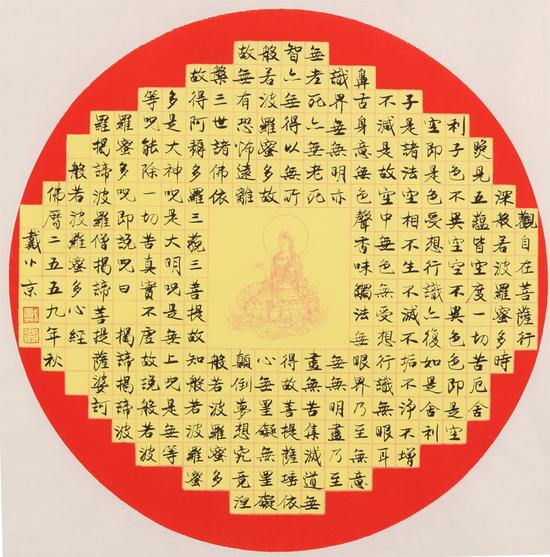 觀自在菩薩行
深般若波羅蜜多時
照見五蘊皆空度一切苦厄舍
利子色不異空空不異色色即是空
空即是色受想行識亦復如是舍利
子是諸法空相不生不滅不垢不淨不增
不減是故空中無色無受想行識無眼耳
鼻舌身意無色聲香味觸法無眼界乃至無意
識界無無明亦無無明盡乃至
無老死亦無老死盡無苦集滅道無
智亦無得以無所得故菩提薩埵依
般若波羅蜜多故心無罣礙無罣礙
故無有恐怖遠離顛倒夢想究竟涅
槃三世諸佛依般若波羅蜜多
故得阿耨多羅三藐三菩提故知般若波羅蜜
多是大神咒是大明咒是無上咒是無等
等咒能除一切苦真實不虛故說般若波
羅蜜多咒即說咒曰 揭諦揭諦波
羅揭諦波羅僧揭諦菩提薩婆訶
般若波羅蜜多心經
佛曆二五五九年秋
戴小京